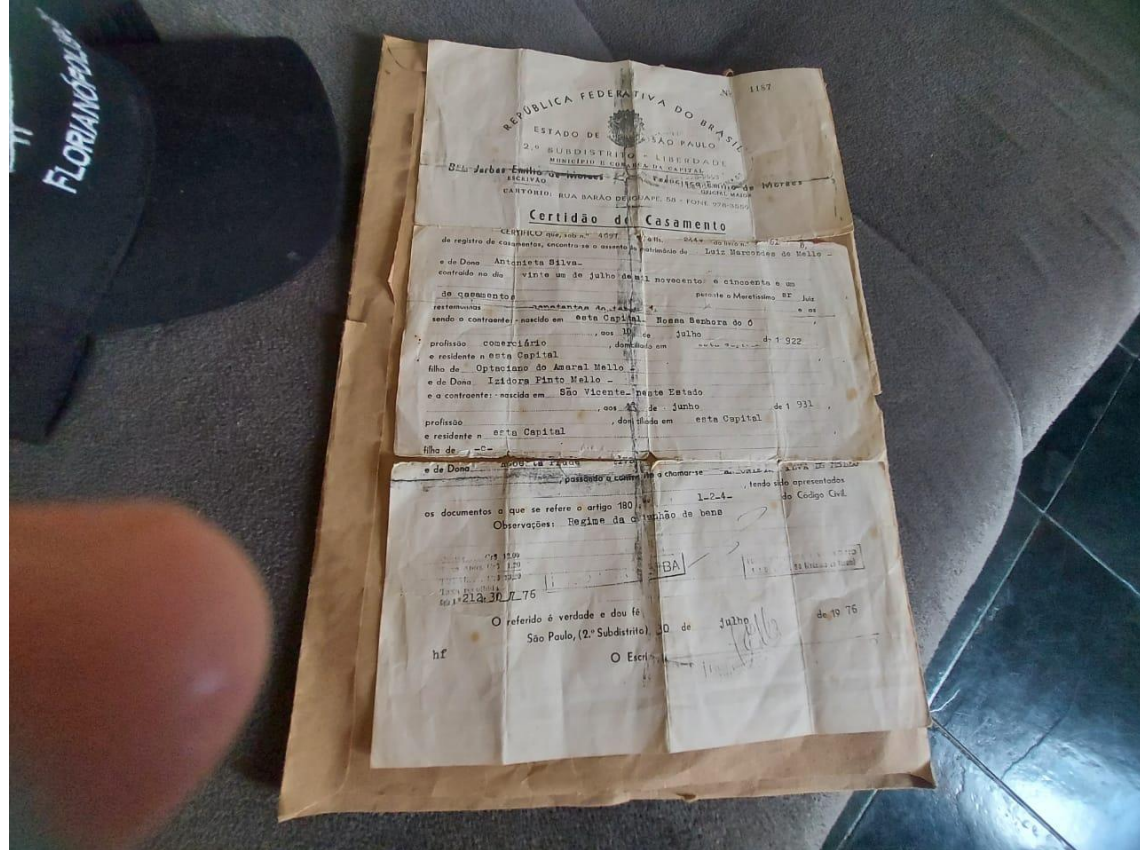 FLORIANÓPOLIS
Nº 1187
REPÚBLICA FEDERATIVA DO BRASIL
ESTADO DE SÃO PAULO
2.º SUBDISTRITO - LIBERDADE
MUNICÍPIO E COMARCA DA CAPITAL
Bel. Jarbas Emilio de Moraes Francisco Emilio de Moraes
ESCRIVÃO OFICIAL MAIOR
CARTÓRIO: RUA BARÃO DE IGUAPE, 58 - FONE
Certidão de Casamento
CERTIFICO que, sob n.º
de registro de casamentos, encontra-se o assento de matrimônio de Luiz Marcondes de Mello -
e de Dona Antonieta Silva-
contraído no dia vinte um de julho de mil novecentos e cincoenta e um
de casamentos perante o Meretíssimo sr Juiz
testemunhas constantes do termo e as
sendo o contraente: nascido em esta Capital- Nossa Senhora do Ó ,
, aos 10 de julho de 1 922
profissão comerciário , domiciliado em esta Capital
e residente n esta Capital
filho de Optaciano do Amaral Mello -
e de Dona Izidora Pinto Mello -
e a contraente: nascida em São Vicente- neste Estado
, aos de junho de 1 931 ,
profissão , domiciliada em esta Capital
e residente n esta Capital
filha de -o-
e de Dona
, passando a contraente a chamar-se
, tendo sido apresentados
os documentos a que se refere o artigo 180 1-2-4- do Código Civil.
Observações: Regime da comunhão de bens
212 30 7 76
O referido é verdade e dou fé
São Paulo, (2.º Subdistrito), 30 de julho de 19 76
hf O Escri